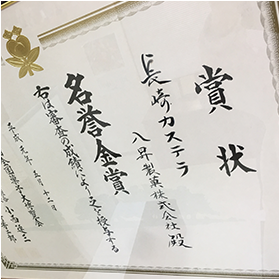 賞状
長崎カステラ
八昇製菓株式会社殿
名誉金賞
右は審査の成績により之を授与する
平成元年五月十二日
全国菓子大博覧会